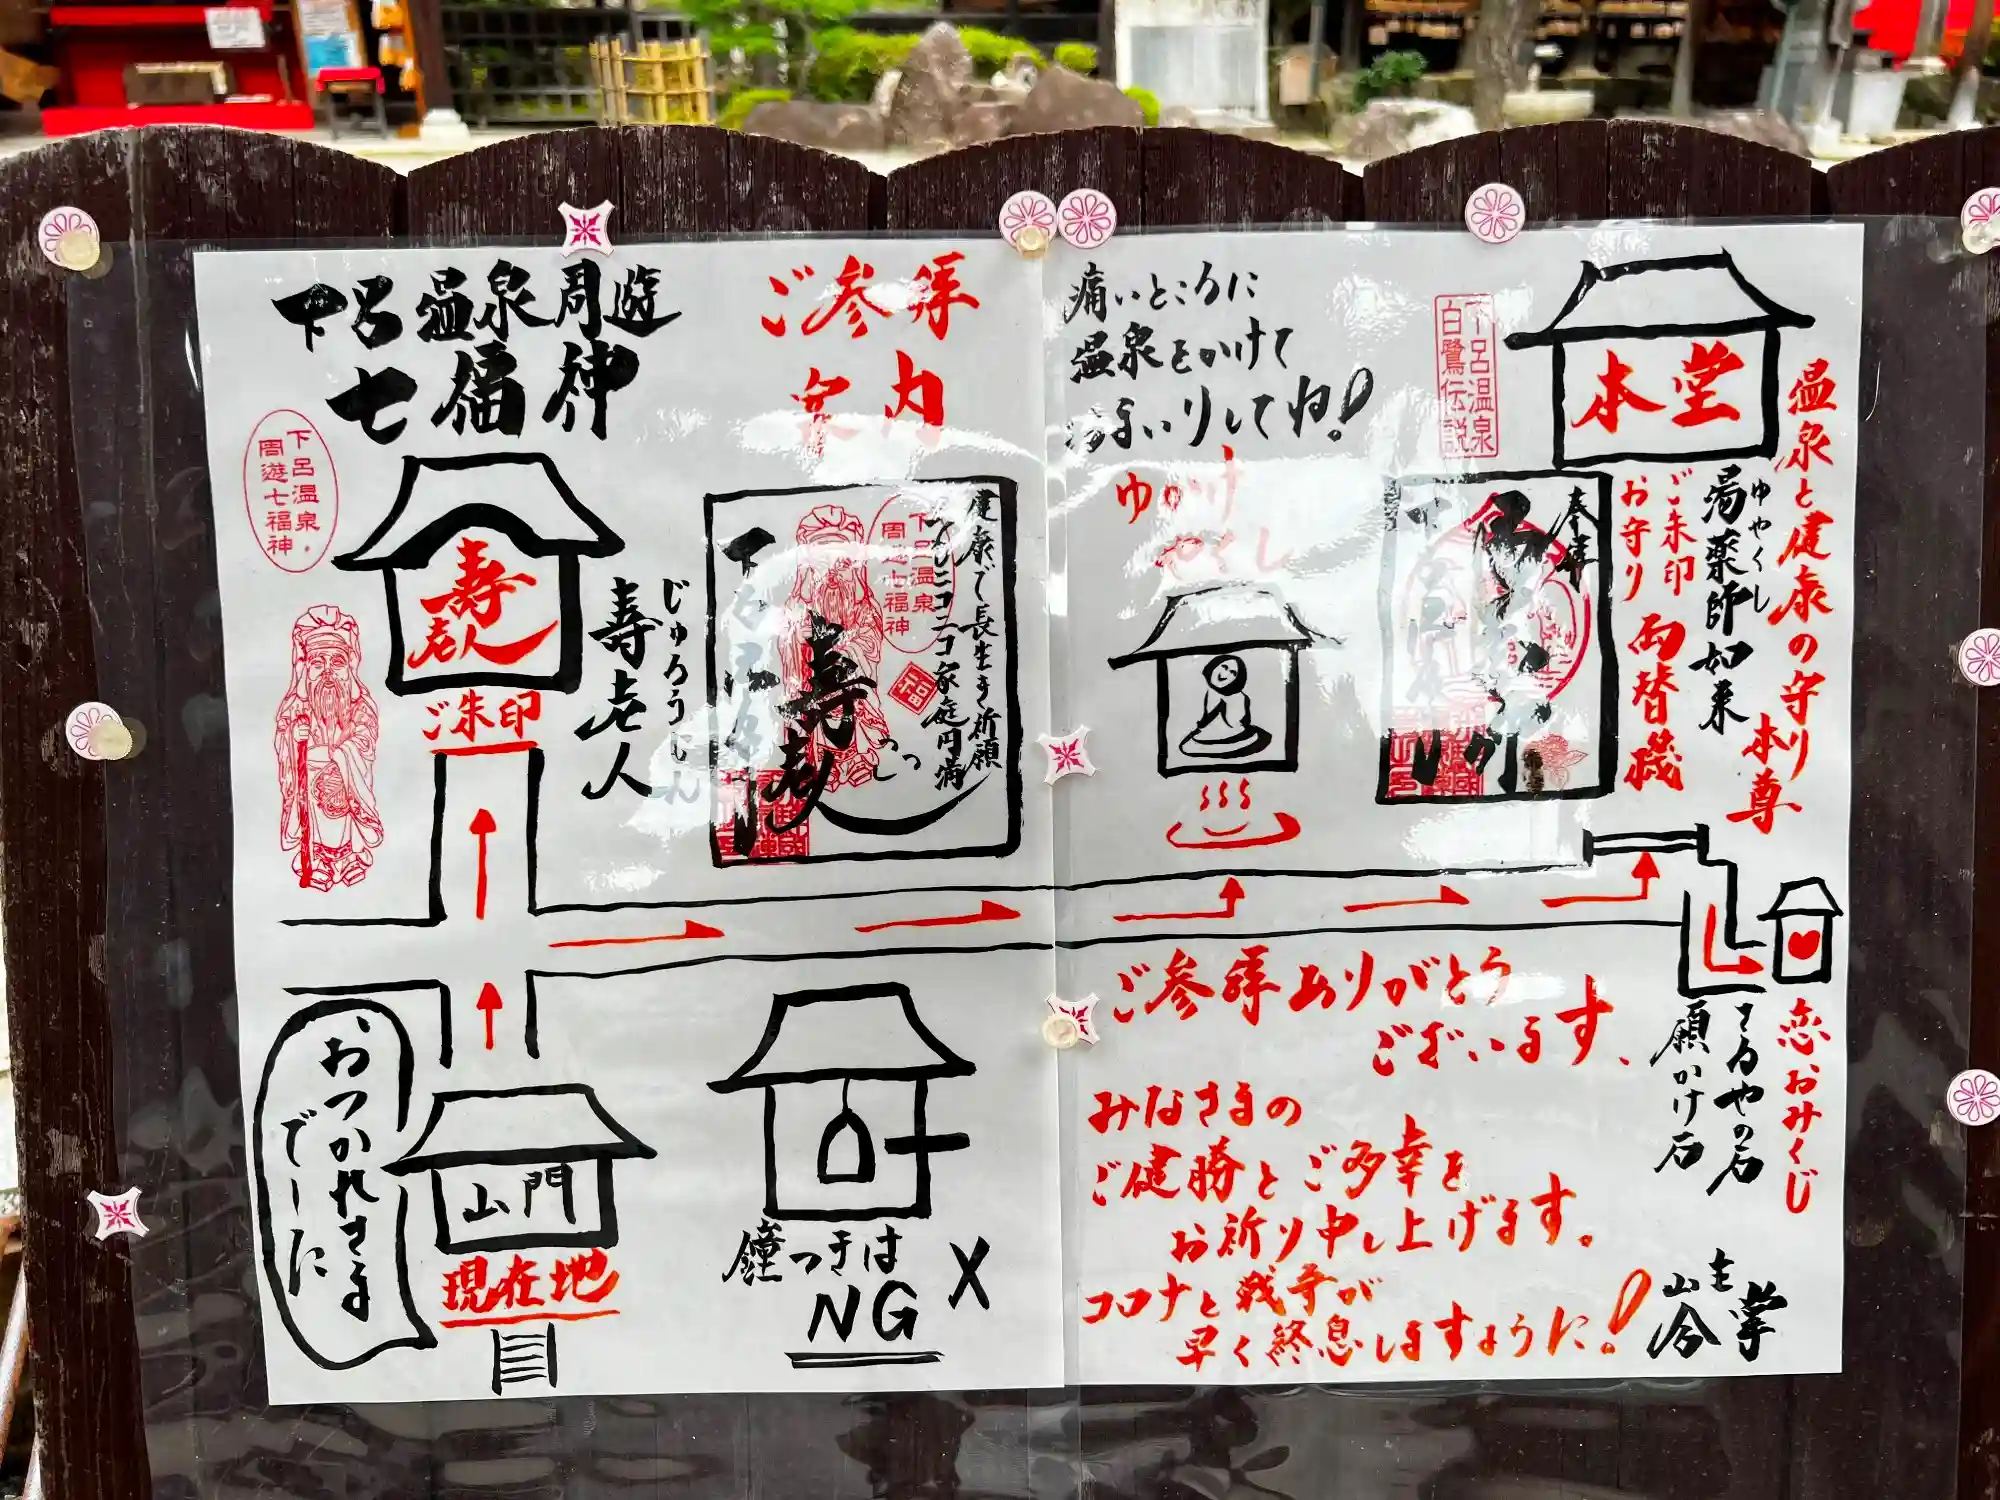 下呂温泉周遊
七福神
ご参拝
案内
下呂温泉・
周遊七福神
寿
老人
ご朱印
じゅろうじん
寿老人
健康で長生き祈願
ニコニコ家庭円満
下呂温泉
周遊七福神
福
寿老人
痛いところに
温泉をかけて
お
まいりしてね!
ゆかけ
やくし
下呂温泉
白鷺伝説
本堂
温泉と健康の守り
本尊
ゆやくし
湯薬師如来
ご朱印
お守り
両替機
奉拝
恋おみくじ
さるやの石
願かけ石
おつかれさま
でーした
山門
現在地
鐘つきは
NG
X
ご参拝ありがとう
ございます、
みなさまの
ご健勝とご多幸を
お祈り申し上げます。
コロナと戦争が
早く終息しますように!
山主
合掌